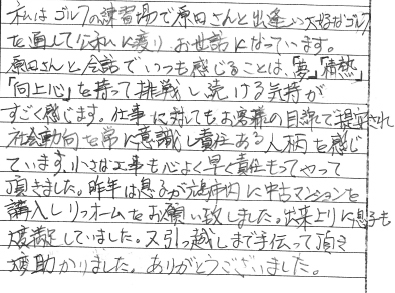 私はゴルフの練習場で原田さんと出逢い大好なゴルフ
を通して公私に渡りお世話になっています。
原田さんと会話でいつも感じることは、「夢」「情熱」
「向上心」を持って挑戦し続ける気持が
すごく感じます。仕事に対してもお客様の目線で提案され
社会動向を常に意識し責任ある人柄を感じ
ています。小さな工事も心よく早く責任もってやって
頂きました。昨年は息子が市内に中古マンションを
購入しリフォームをお願い致しました。出来上りに息子も
大変満足していました。又引っ越しまで手伝って頂き
大変助かりました。ありがとうございました。